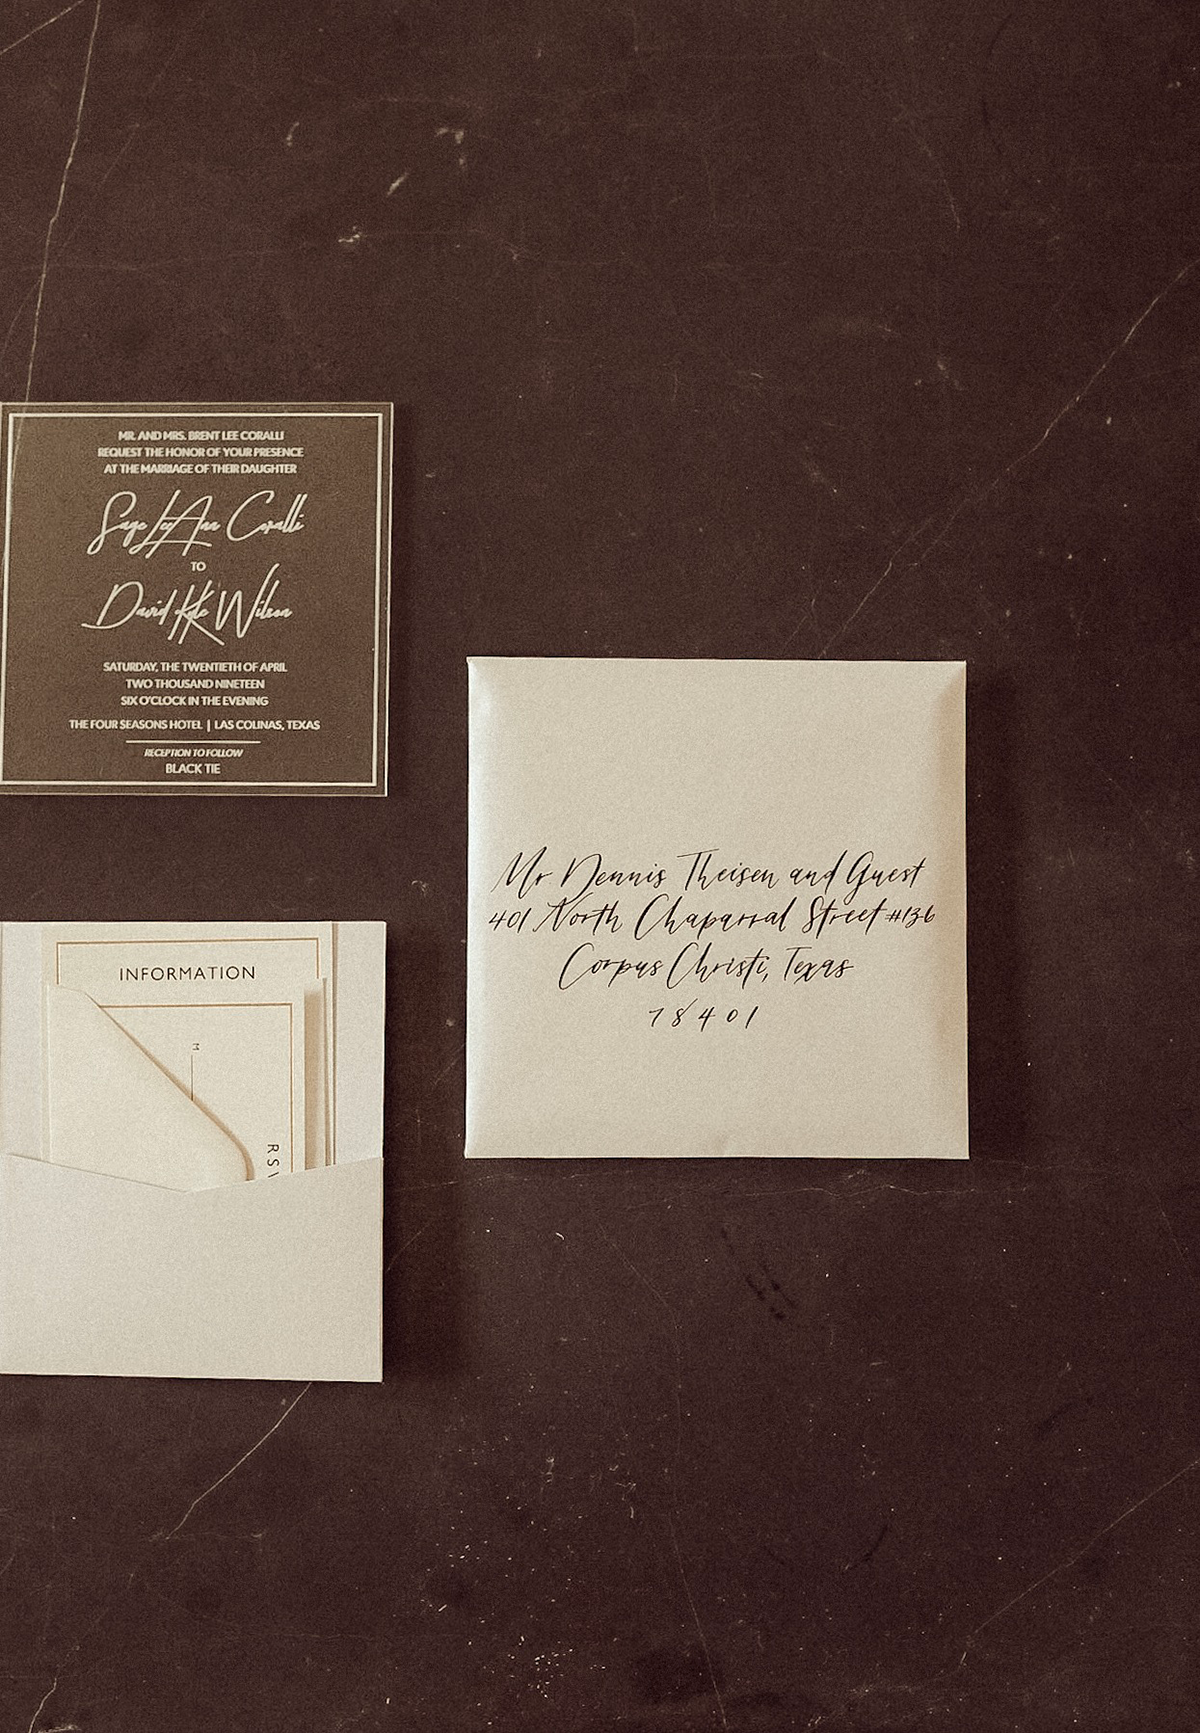 MR. AND MRS. BRENT LEE CORALLI
REQUEST THE HONOR OF YOUR PRESENCE
AT THE MARRIAGE OF THEIR DAUGHTER
Sage LeeAnn Coralli
TO
David Kyle Wilson
SATURDAY, THE TWENTIETH OF APRIL
TWO THOUSAND NINETEEN
SIX O'CLOCK IN THE EVENING
THE FOUR SEASONS HOTEL | LAS COLINAS, TEXAS
RECEPTION TO FOLLOW
BLACK TIE
Mr. Dennis Theisen and Guest
401 North Chaparral Street #136
Corpus Christi, Texas
78401
INFORMATION
M
RSV